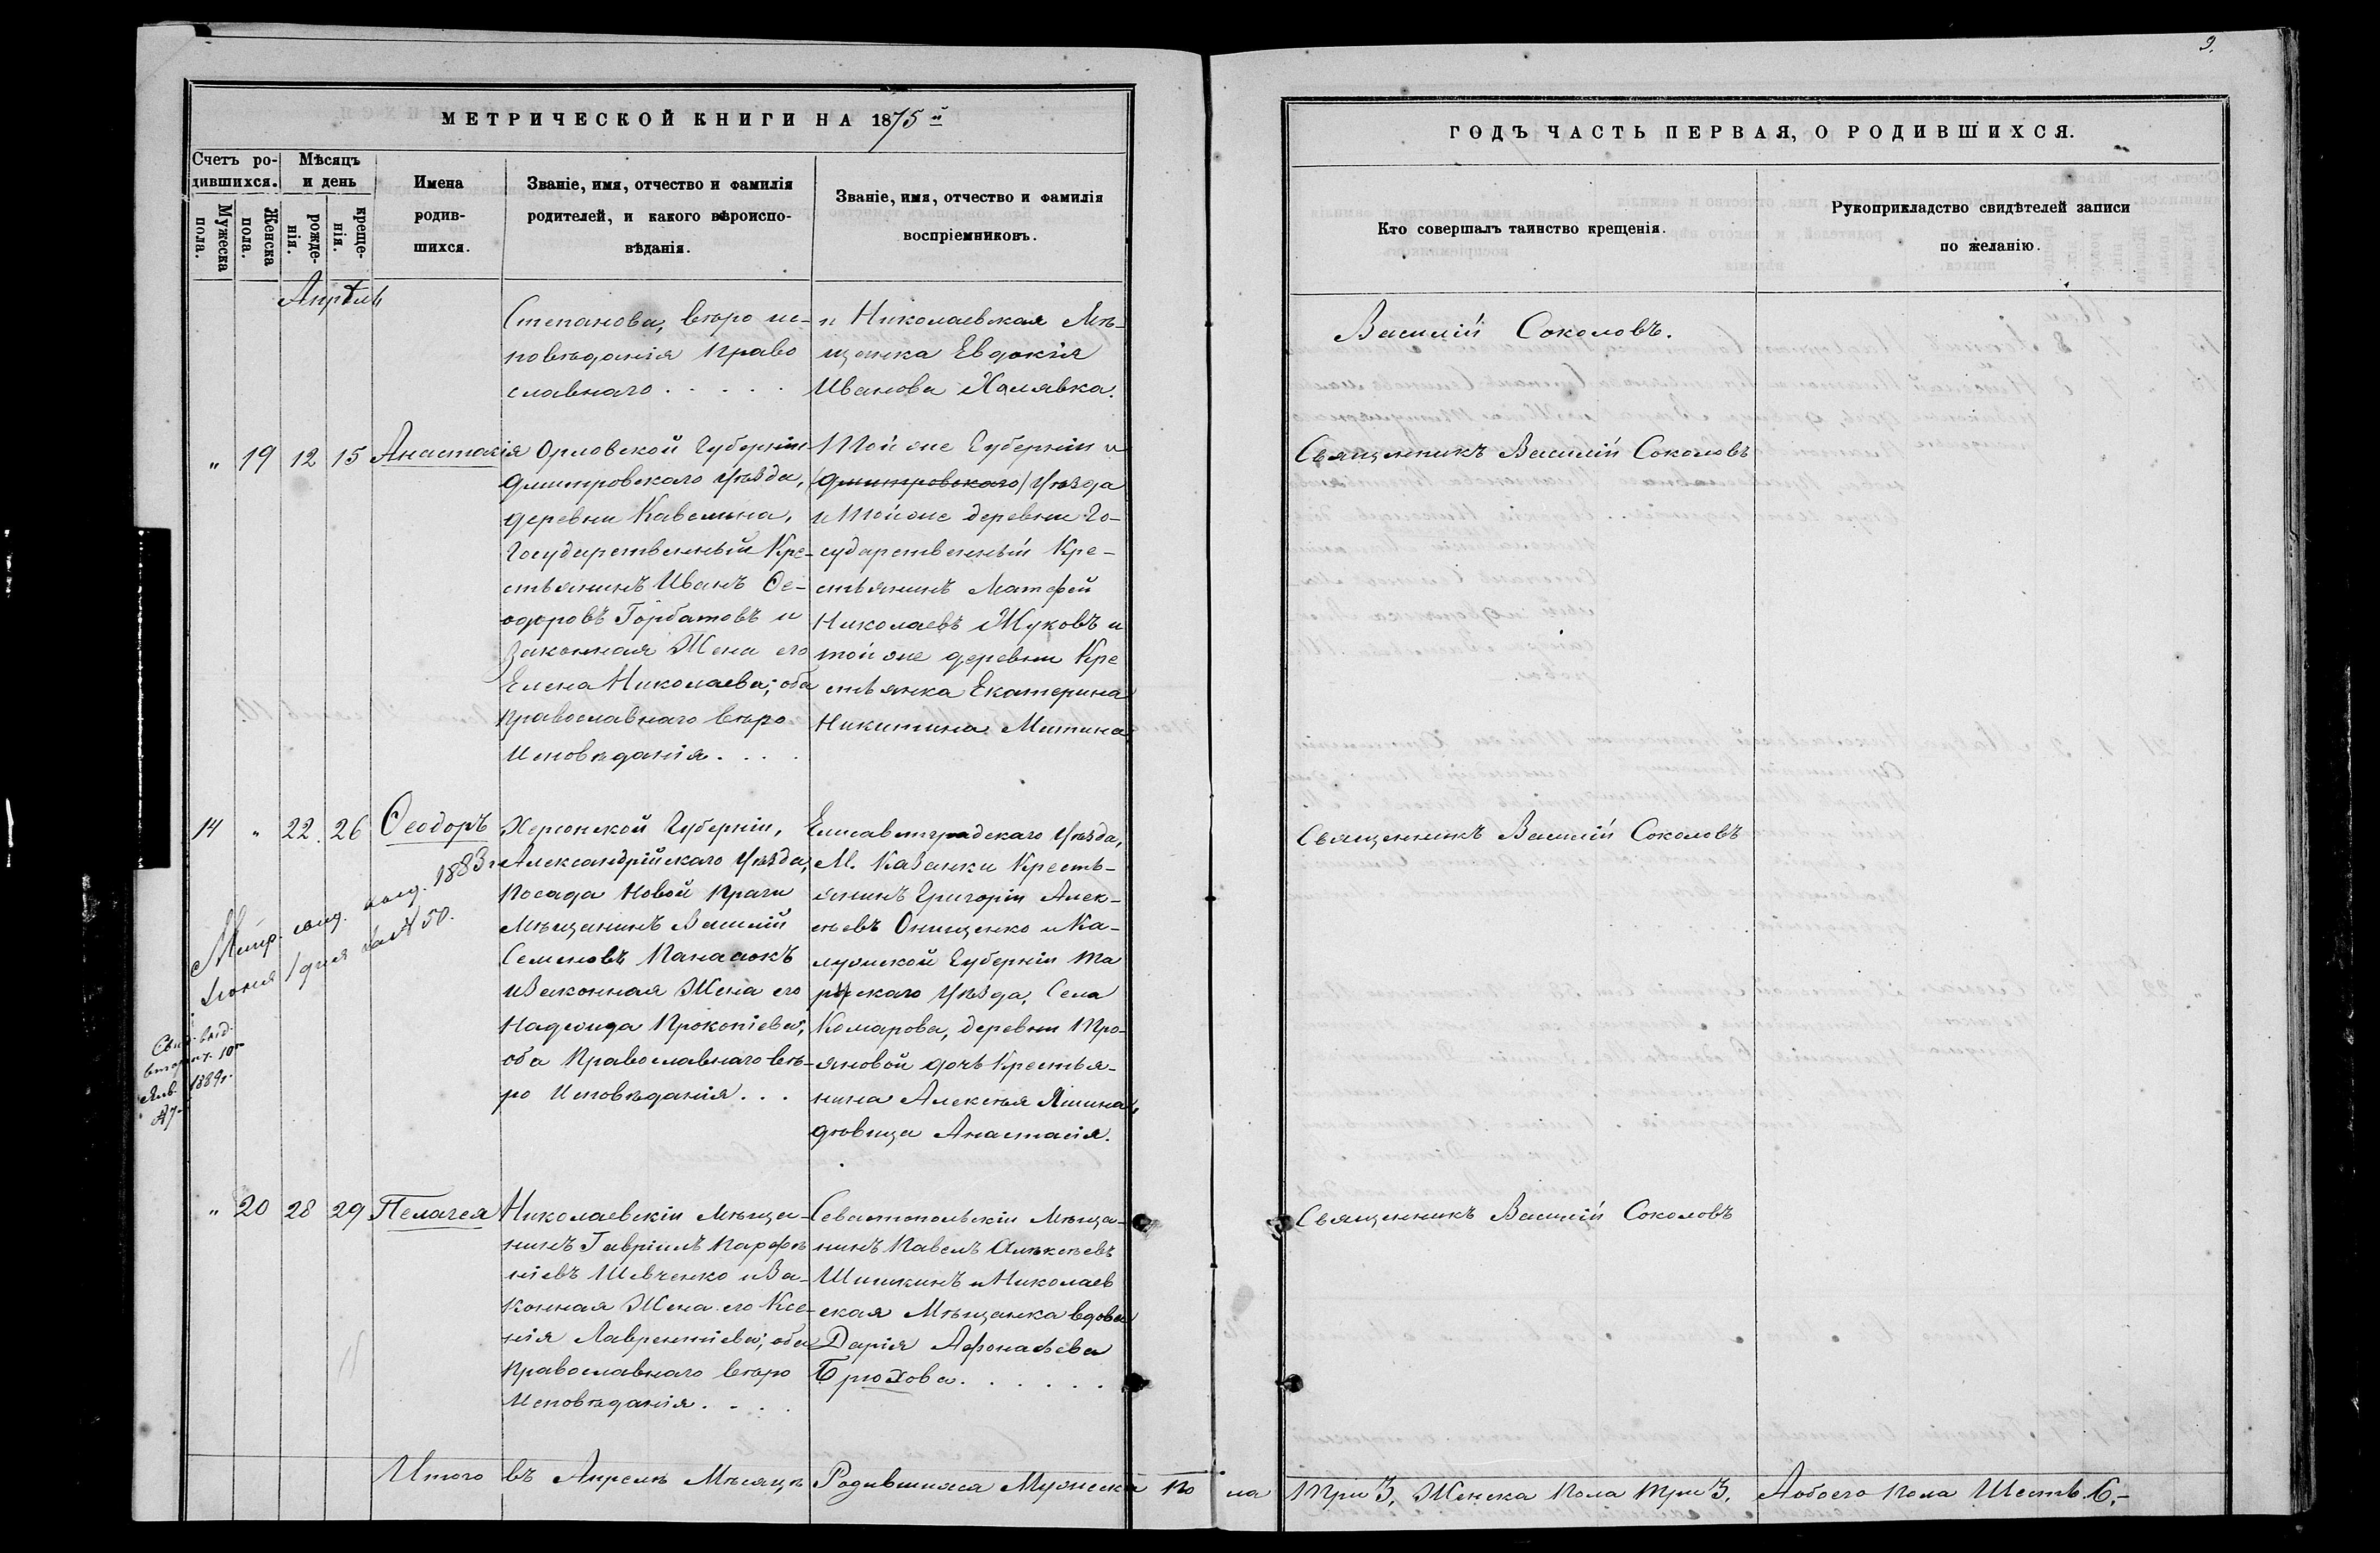 9.
МЕТРИЧЕСКОЙ КНИГИ НА 1875й
ГОДЪ ЧАСТЬ ПЕРВАЯ, О РОДИВШИХСЯ.
Счетъ ро-
дившихся.
Мужеска
пола.
Женска
пола.
Мѣсяцъ
и день
рожде-
нія.
креще-
нія.
Имена
родив-
шихся.
Званіе, имя, отчество и фамилія
родителей, и какого вѣроиспо-
вѣданія.
Званіе, имя, отчество и фамилія
воспріемниковъ.
Кто совершалъ таинство крещенія.
Рукоприкладство свидѣтелей записи
по желанію.
Апрѣль
Степанова, вѣро ис-
повѣданія право
славнаго . . . . .
и Николаевская Мѣ-
щанка Евдокія
Иванова Халявка.
Василій Соколовъ.
„ 19 12 15 Анастасія
Орловской Губерніи
Дмитровскаго Уѣзда,
деревни Кавелина,
Государственный Кре-
стьянинъ Иванъ Ѳе-
одоровъ Горбатовъ и
Законная Жена его
Елена Николаева; оба
Православнаго вѣро
Исповѣданія. . . .
Той же Губерніи и
(Дмитровскаго) Уѣзда
и Той же деревни Го-
сударственный Кре-
стьянинъ Матфей
Николаевъ Жуковъ и
той же деревни Кре
стьянка Екатерина
Никитина Митина
Священникъ Василій Соколовъ
14 „ 22. 26 Ѳеодоръ
Херсонской Губерніи,
Александрійскаго Уѣзда,
Посада Новой Праги
Мѣщанинъ Василій
Семеновъ Панасюкъ
и Законная Жена его
Надежда Прокопіева;
оба Православнаго вѣ-
ро Исповѣданія. . .
Елисаветградскаго Уѣзда,
М. Казанки Кресть-
янинъ Григорій Алек-
сѣевъ Онищенко и Ка-
лужской Губерніи Та
рускаго Уѣзда, Села
Комарова, деревни
дочь Крестья-
нина Алексѣя Яшина
дѣвица Анастасія.
Священникъ Василій Соколовъ
1883 г.
Іюня 1 дня за № 50.
Свид. выд.
10го
Янв. 1889 г.
№ 7
„ 20 28 29 Пелагея
Николаевскій Мѣща-
нинъ Гавріилъ Парфе
ніевъ Шевченко и За-
конная Жена его Ксе-
нія Лаврентіева; оба
Православнаго вѣро
Исповѣданія. . . .
Севастопольскій Мѣща-
нинъ Павелъ Алексѣевъ
Шишкинъ и Николаев
ская Мѣщанка вдова
Дарія Афонасьева
Брюхова. . . . . . .
Священникъ Василій Соколовъ
Итого въ Апрелѣ Мѣсяцѣ Родившихся Мужеска по ла Три 3, Женска Пола Три 3, Аобоего Пола Шесть 6,-